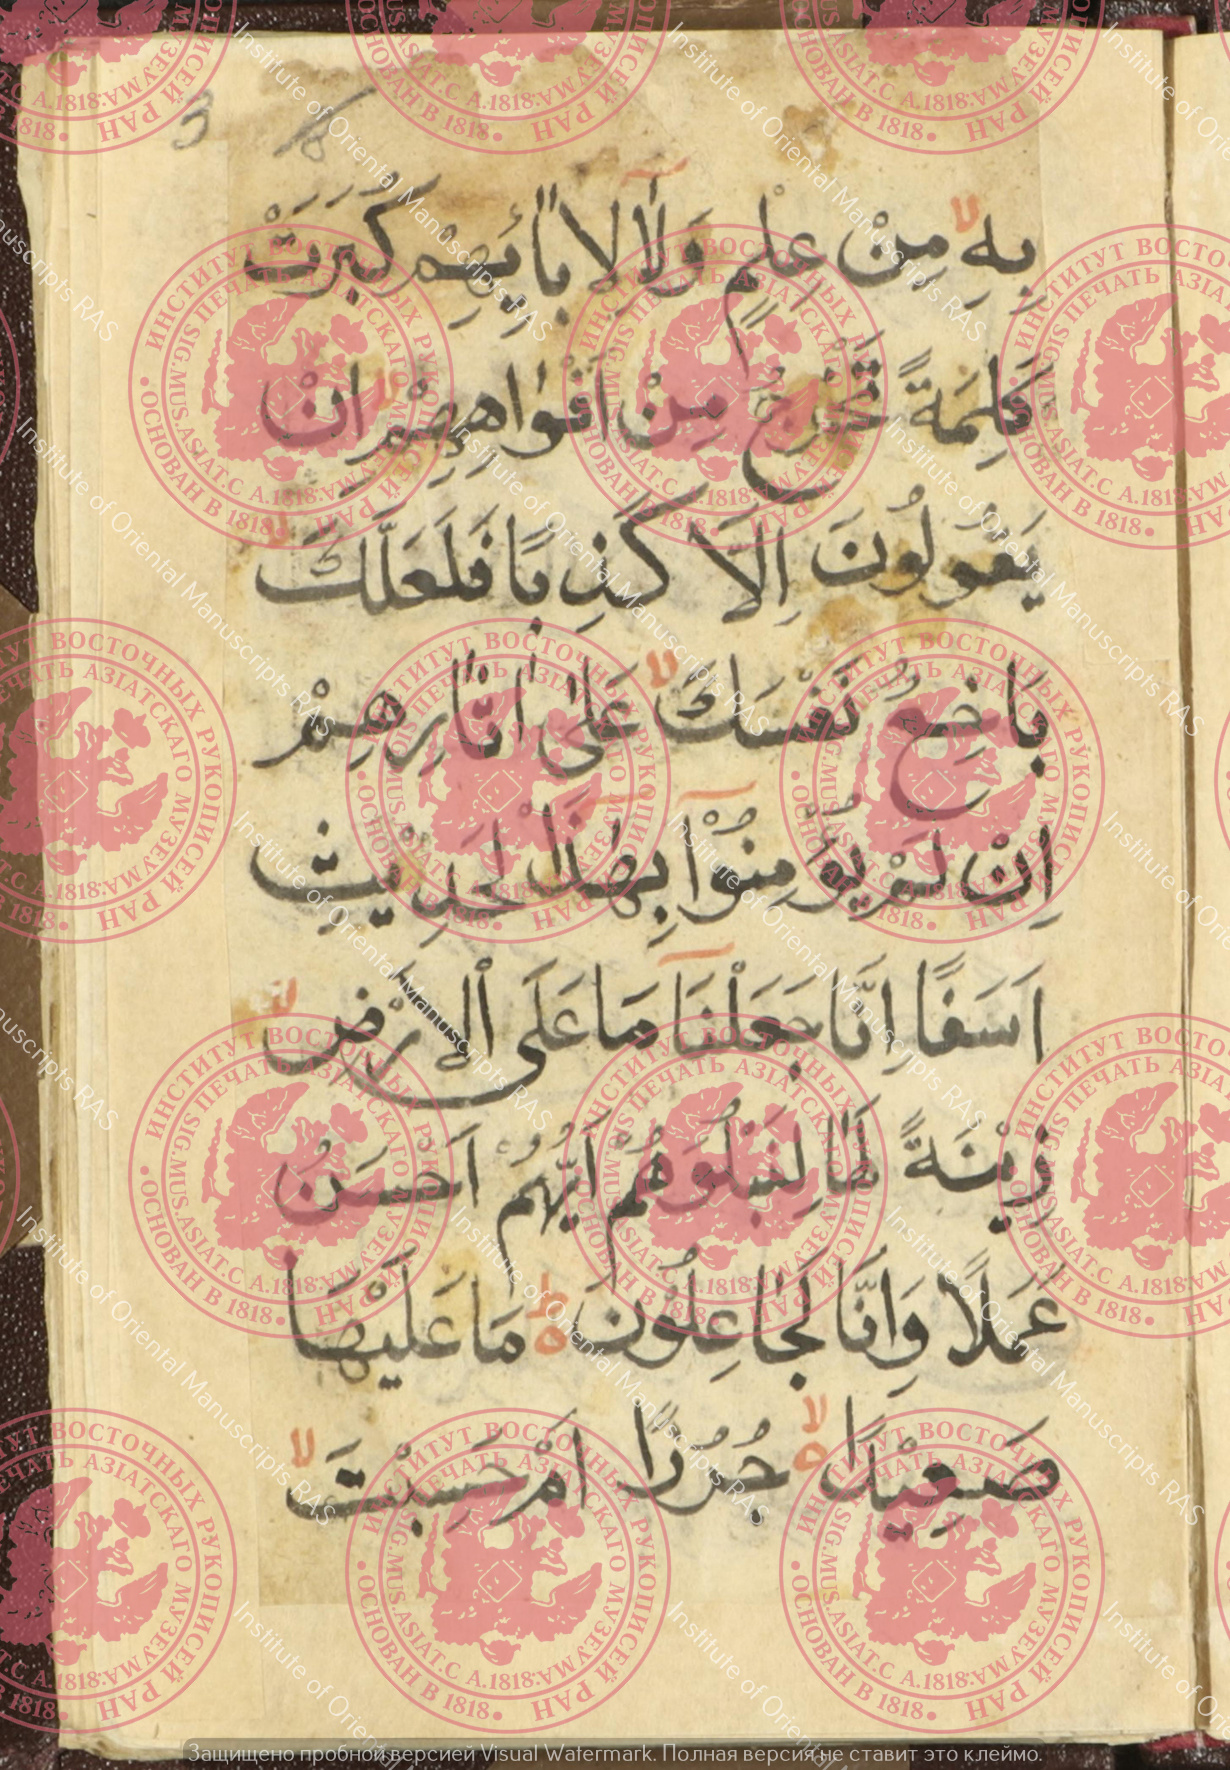 3 8
بِهٖ مِنْ عِلْمٍ وَلَا لِاٰبَائِهِمْ كَبُرَتْ
كَلِمَةً تَخْرُجُ مِنْ اَفْوَاهِهِمْ اِنْ
يَقُولُونَ اِلَّا كَذِبًا فَلَعَلَّكَ
بَاخِعٌ نَفْسَكَ عَلٰى اٰثَارِهِمْ
اِنْ لَمْ يُؤْمِنُوْا بِهٰذَا الْحَدِيْثِ
اَسَفًا اِنَّا جَعَلْنَا مَا عَلَى الْاَرْضِ
زِيْنَةً لَهَا لِنَبْلُوَهُمْ اَيُّهُمْ اَحْسَنُ
عَمَلًا وَاِنَّا لَجَاعِلُوْنَ مَا عَلَيْهَا
صَعِيْدًا جُرُزًا اَمْ حَسِبْتَ
ИНСТИТУТ ВОСТОЧНЫХ РУКОПИСЕЙ РАН • ОСНОВАН В 1818 •
SIG.MUS.ASIAT.C A.1818 ПЕЧАТЬ АЗІАТСКАГО МУЗЕУМА
Institute of Oriental Manuscripts RAS
Защищено пробной версией Visual Watermark. Полная версия не ставит это клеймо.